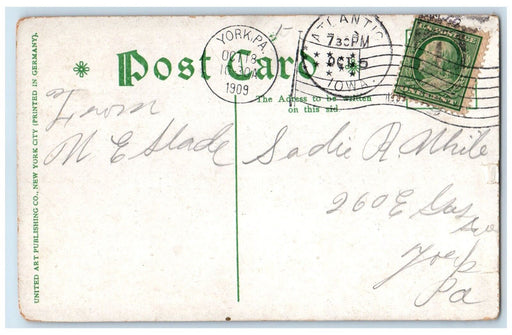 UNITED ART PUBLISHING CO., NEW YORK CITY (PRINTED IN GERMANY).
Post Card
YORK, PA.
OCT 18
1909
ATLANTIC
7 30 PM
OCT 5
IOWA
1909
The Adress to be written
on this sid
From
M E Slade
Sadie A. White
260 E
York
Pa